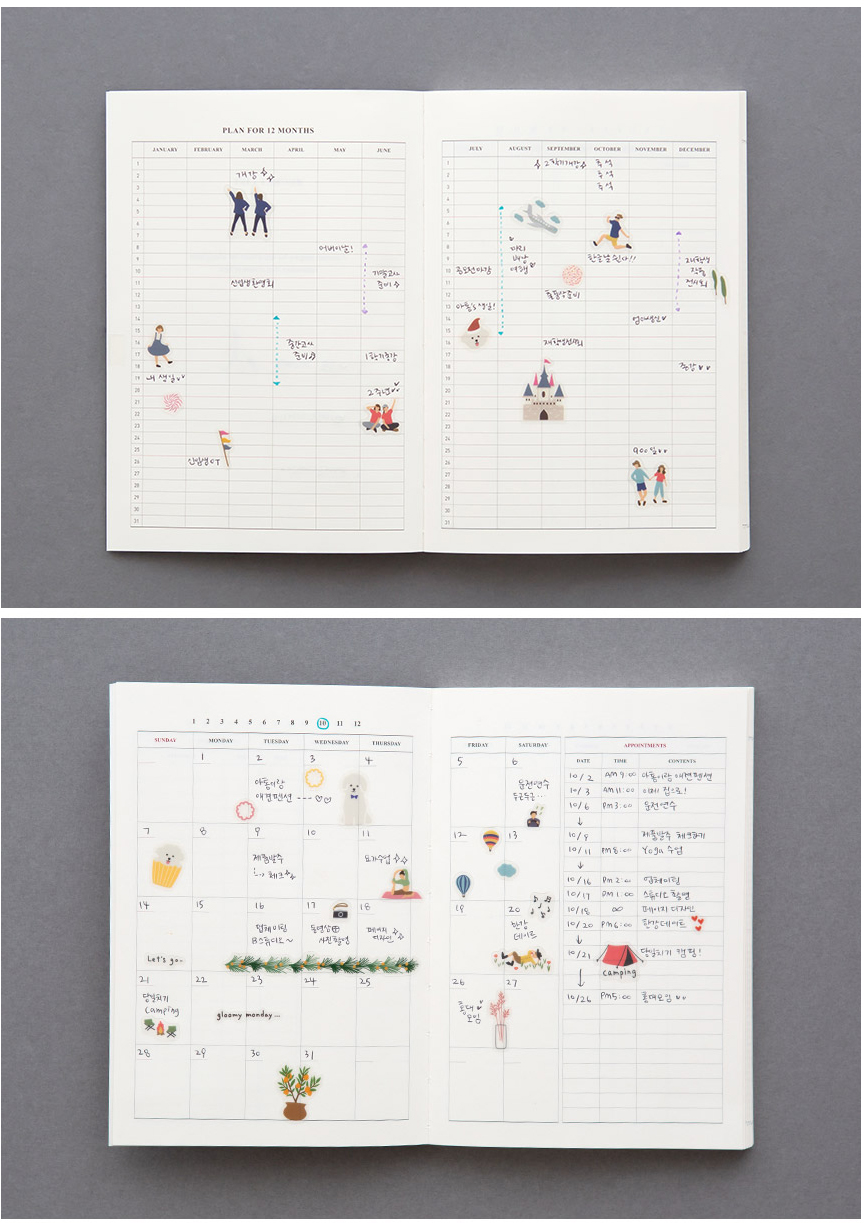 PLAN FOR 12 MONTHS
JANUARY FEBRUARY MARCH APRIL MAY JUNE
1
2 개강
3
4
5
6
7
8 어버이날!
9
10 기말고사
11 신입생환영회 준비
12
13
14
15
16 중간고사
17 준비 1학기종강
18
19 내 생일
20 2주년
21
22
23
24
25
26 신입생OT
27
28
29
30
31
JULY AUGUST SEPTEMBER OCTOBER NOVEMBER DECEMBER
1 2학기개강 추석
2 추석
3 추석
4
5
6
7
8 파리
9 배낭 한글날 쉰다!! 2학년
10 공모전마감 여행 작품
11 전시회
12 졸품앙준비
13 아롱's 생일!
14 엄마생신
15
16
17
18 종강
19
20
21
22
23
24
25 900일
26
27
28
29
30
31
1 2 3 4 5 6 7 8 9 10 11 12
SUNDAY MONDAY TUESDAY WEDNESDAY THURSDAY
1 2 3 4
아롱이랑
애견펜션
7 8 9 10 11
제품발주 요가수업
체크
14 15 16 17 18
업체미팅 동영상 페이지
B스튜디오~ 사진촬영 디자인
Let's go~
21 22 23 24 25
당일치기
camping
gloomy monday...
28 29 30 31
FRIDAY SATURDAY
5 6
운전연수
두근두근...
12 13
19 20
한강
데이트
26 27
홍대
모임
APPOINTMENTS
DATE TIME CONTENTS
10/2 AM 9:00 아롱이랑 애견펜션
10/3 AM 11:00 이제 집으로!
10/6 PM 3:00 운전연수
10/9 제품발주 체크하기
10/11 PM 8:00 Yoga 수업
10/16 PM 2:00 업체미팅
10/17 PM 1:00 스튜디오 촬영
10/18 페이지 디자인
10/20 PM 6:00 한강데이트
10/21 당일치기 캠핑!
camping
10/26 PM 5:00 홍대모임